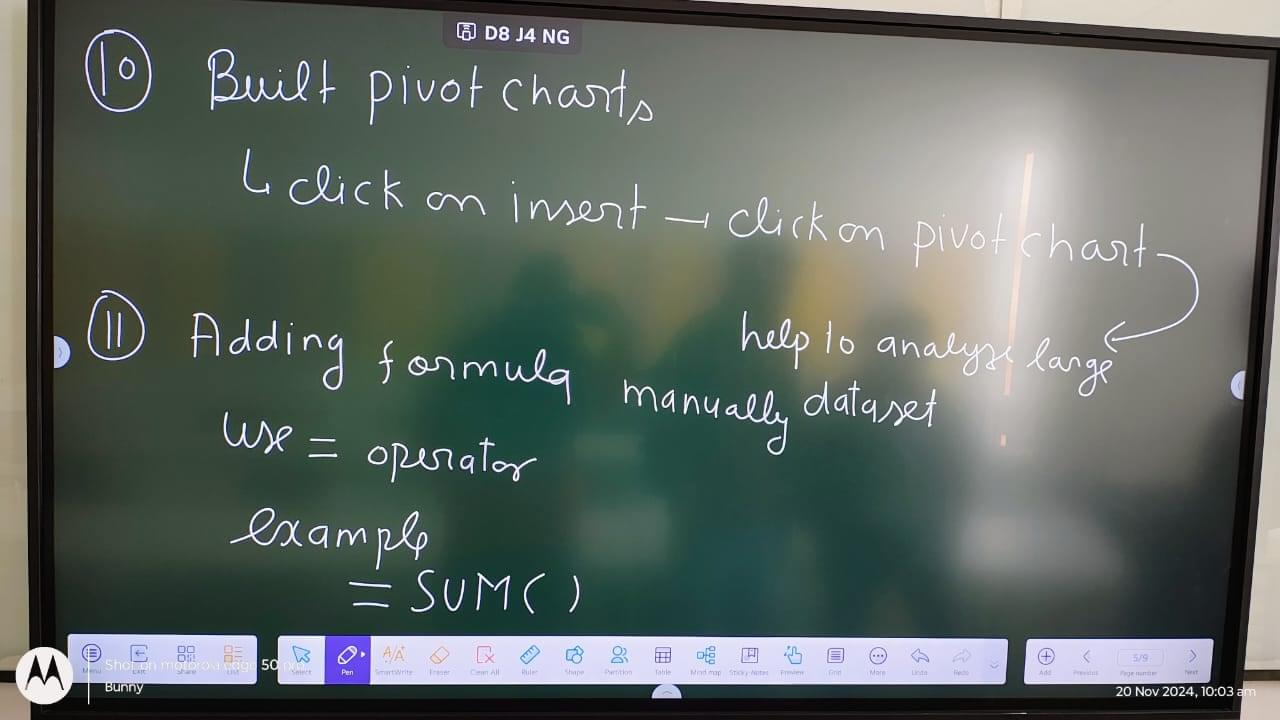 D8 J4 NG
10 Built pivot charts
↳ click on insert → click on pivot chart
help to analyze large
dataset
11 Adding formula manually
use = operator
example
= SUM( )
Menu Exit Share List Select Pen SmartWrite Eraser Clean All Ruler Shape Partition Table Mind map Sticky-Notes Preview Grid More Undo Redo Add Previous 5/9 Page number Next
Shot on motorola edge 50 pro
Bunny
20 Nov 2024, 10:03 am